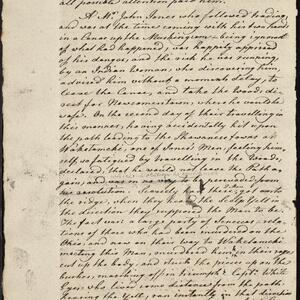 all possible attention paid them.
A Mr. John Jones who followed trading
and was at the time coming with his two hands
in a Canoe up the Muskingum — being ignorant
of what had happened, was happily apprised
of his danger, and the risk he was running,
by an Indian Woman, who discovering him,
advised him without a moments delay, to
leave the Canoe, and take the Woods di-
rect for Newcomerstown, where he would be
safe. On the second day of their travelling in
this manner, having accidentally hit upon
the path leading to the Shawanese towns at
Waketameki, one of Jones's Men, feeling him
self so fatigued by travelling in the Woods,
declared, that he would not leave the Path a-
gain, and was no way to be
his resolution. Scarcely had the got onto
the ridge, when they heard the Scalp Yell in
the direction they supposed the Man to be.
The fact was a large party of Shawanese rela-
tions of those who had been murdered on the
Ohio, and now on their way to Waketameki
meeting this Man, murdered him on their
cut up the body, and stuck the pieces up on the
bushes, marching off in triumph. Captn. White
Eyes who lived some distance from the path,
hearing the Yell, ran instantly in that direction